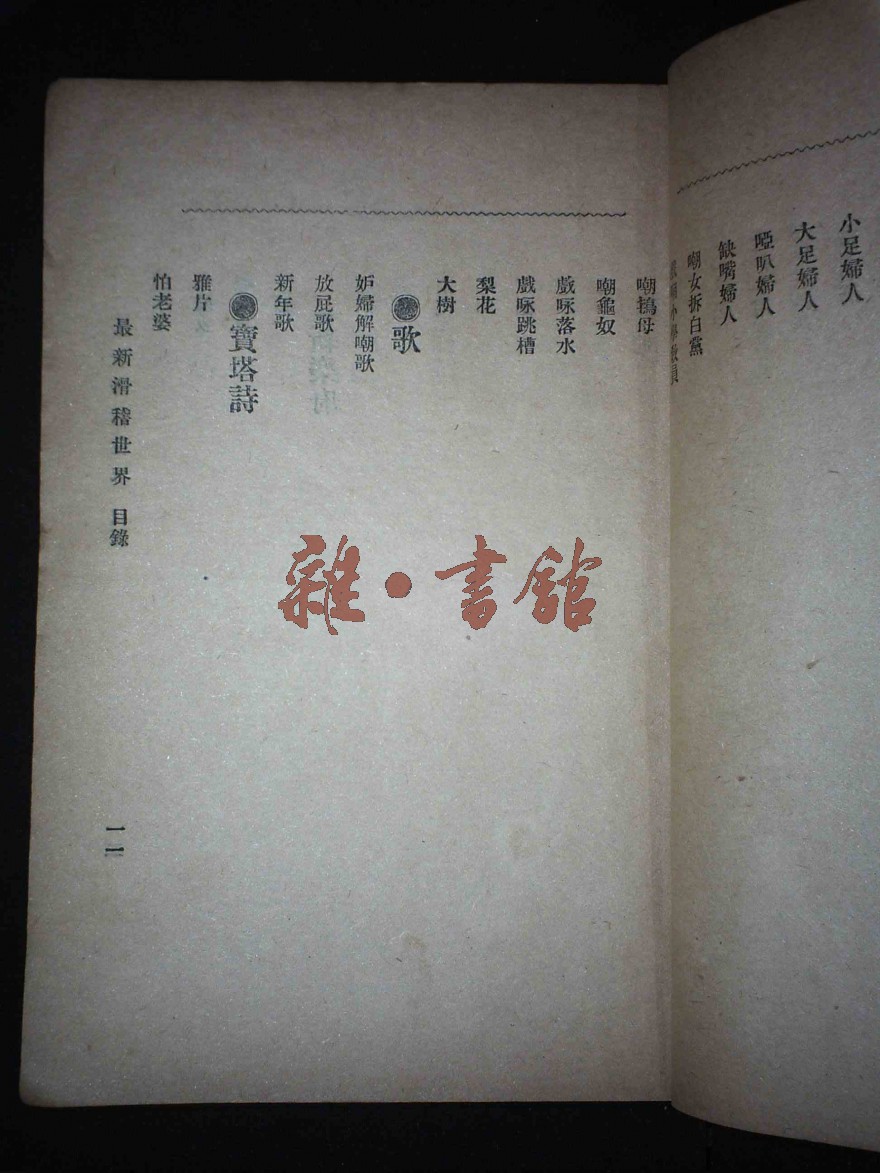 小足婦人
大足婦人
啞叭婦人
缺嘴婦人
嘲女拆白黨
小學教員
嘲鴇母
嘲龜奴
戲咏落水
戲咏跳槽
梨花
大樹
歌
妒婦解嘲歌
放屁歌
新年歌
寶塔詩
雅片
怕老婆
最新滑稽世界 目錄
一一
雜·書館